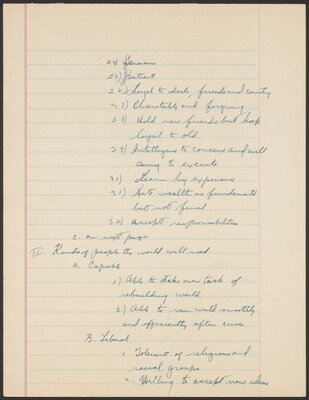 24) Generous
25) Patient
26) Loyal to ideals, friends and country
27) Charitable and forgiving
28) Add new friends but keep
loyal to old.
29) Intelligence to conceive and will
carry to execute
30) Learn by experience
31) wealth as fundamental
but not final
32) accept responsibilities
2. on next page
II Kinds of people the world will need
A. Capable
1) Able to take over task of
rebuilding world
2) Able to run world smoothly
and efficiently after crisis
B. Liberal
1 Tolerant of religious and
racial groups
2. Willing to accept new ideas